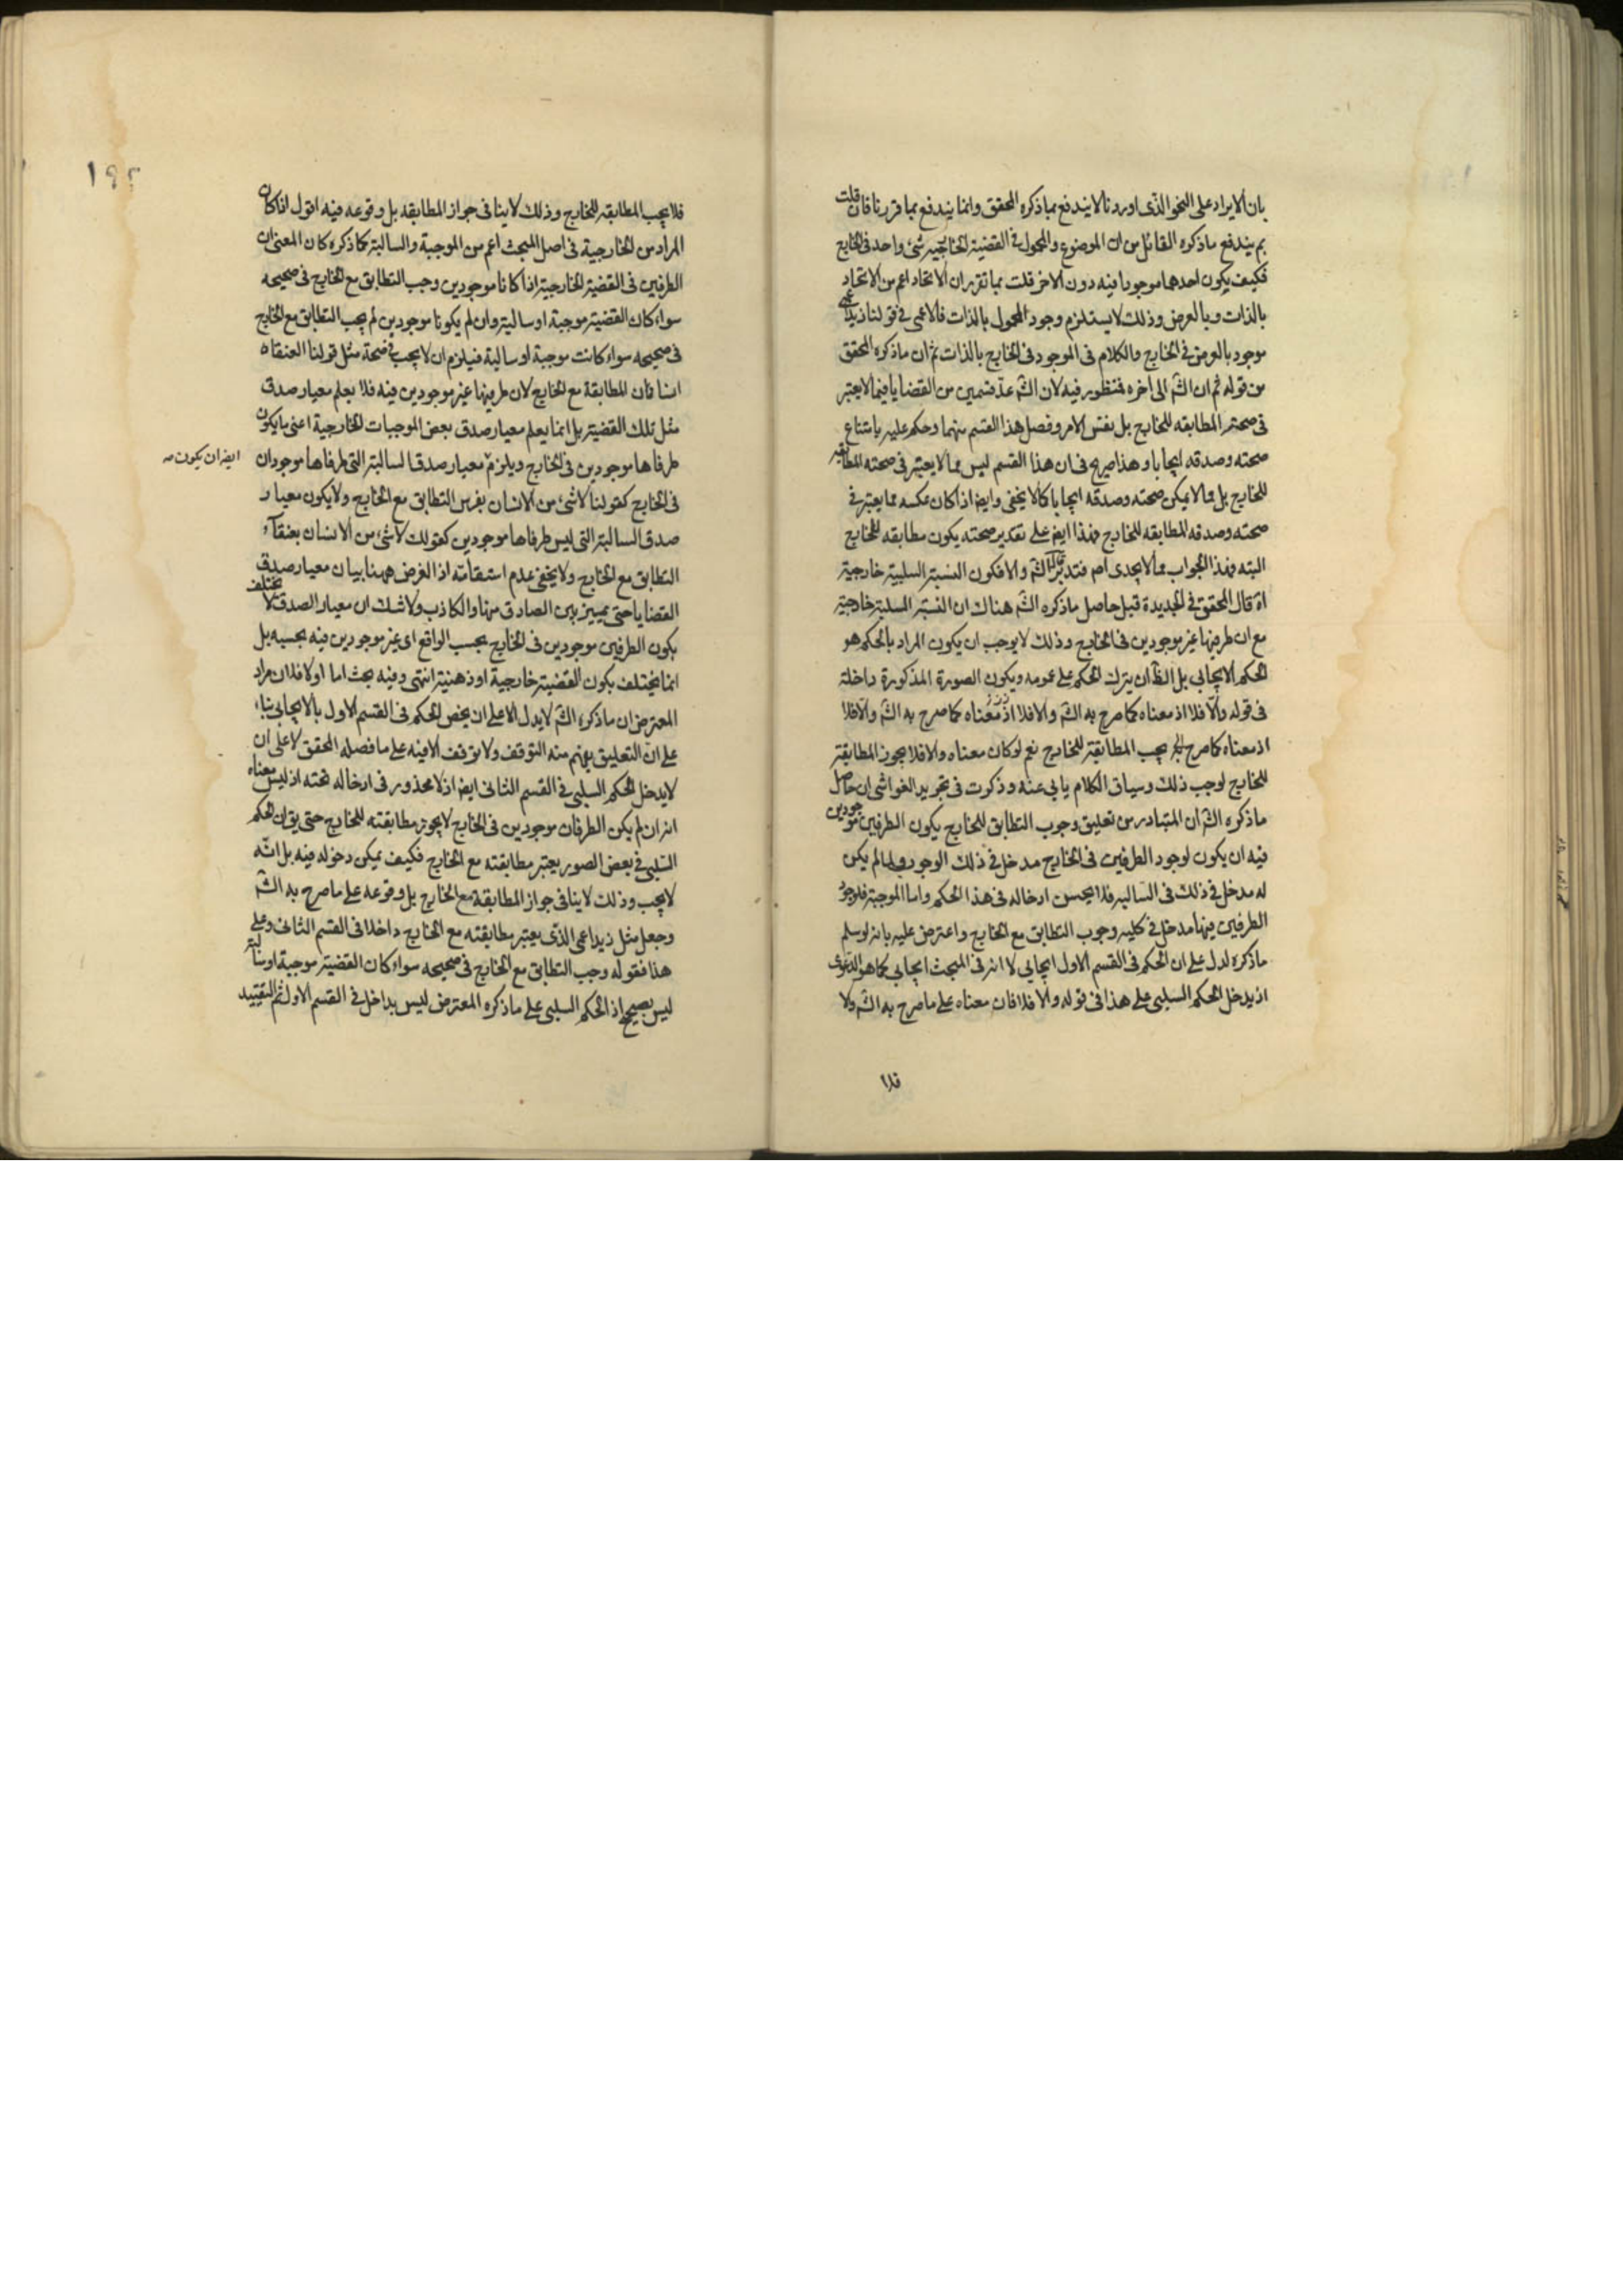 بان الايراد على النحو الذى اوردنا لا يندفع بما ذكره المحقق وانما يندفع بما قررنا فان قلت
بم يندفع ما ذكره القائل من ان الموضوع والمحمول فى القضية الخارجيه شئ واحد فى الخارج
فكيف يكون احدهما موجودا فيه دون الاخر قلت بما تقرر ان الاتحاد اعم من الاتحاد
بالذات وبالعرض وذلك لا يستلزم وجود المحمول بالذات فالاعمى فى قولنا زيد اعمى
موجود بالعرض فى الخارج والكلام فى الموجود فى الخارج بالذات ثم ان ما ذكره المحقق
من قوله ثم ان الشم الى اخره فمنظور فيه لان الشم عد قسمين من القضايا فيما لا يعتبر
فى صحته المطابقه للخارج بل نفس الامر وفصل هذا القسم منهما وحكم عليه بامتناع
صحته وصدقه ايجابا وهذا صريح فى ان هذا القسم ليس مما لا يعتبر فى صحته المطابقه
للخارج بل مما لا يمكن صحته وصدقه ايجابا كما لا يخفى وايضا اذا كان عكسه مما يعتبر فى
صحته وصدقه المطابقه للخارج فهذا ايض على تقدير صحته يكون مطابقه للخارج
البته فهذا الجواب مما لا يجدى اصم فتدبر قال الشم والا فكون النسبة السلبية خارجية
اه قال المحقق فى الجديدة قيل حاصل ما ذكره الشم هناك ان النسبة السلبية خارجية
مع ان طرفيها غير موجودين فى الخارج وذلك لا يوجب ان يكون المراد بالحكم هو
الحكم الايجابى بل الظ ان يترك الحكم على عمومه ويكون الصورة المذكورة داخلة
فى قوله والا فلا اذ معناه كما صرح به الشم والا فلا اذ معناه كما صرح به الشم والا فلا
اذ معناه كما صرح يجب المطابقة للخارج نعم لو كان معناه والا فلا يجوز المطابقة
للخارج لوجب ذلك وسياق الكلام يابى عنه وذكرت فى تجريد الغواشى ان حاصل
ما ذكره الشم ان المتبادر من تعليق وجوب التطابق للخارج بكون الطرفين موجودين
فيه ان يكون لوجود الطرفين فى الخارج مدخل فى ذلك الوجوب ولما لم يكن
له مدخل فى ذلك فى السالبه فلا يحسن ادخاله فى هذا الحكم واما الموجبة فلوجود
الطرفين فيها مدخل فى كليه وجوب التطابق مع الخارج واعترض عليه بانه لو سلم
ما ذكره لدل على ان الحكم فى القسم الاول ايجابى لا انه فى المبحث ايجابى كما هو الدعوى
اذ يدخل الحكم السلبى على هذا فى قوله والا فلا فان معناه على ما صرح به الشم ولا
فلا
١٩٢
فلا يجب المطابقه للخارج وذلك لا ينافى جواز المطابقه بل وقوعه فيه اقول اذا كان
المراد من الخارجية فى اصل المبحث اعم من الموجبة والسالبة كما ذكره كان المعنى ان
الطرفين فى القضية الخارجية اذا كانا موجودين وجب التطابق مع الخارج فى صحيحه
سواء كان القضية موجبة او سالبة وان لم يكونا موجودين لم يجب التطابق مع الخارج
فى صحيحه سواء كانت موجبة او سالبة فيلزم ان لا يجب فى صحة مثل قولنا العنقاء
انسان المطابقة مع الخارج لان طرفيها غير موجودين فيه فلا يعلم معيار صدق
مثل تلك القضية بل انما يعلم معيار صدق بعض الموجبات الخارجية اعنى ما يكون
طرفاها موجودين فى الخارج ويلزم معيار صدق السالبة التى طرفاها موجودان
ايضا ان يكون صح
فى الخارج كقولنا لا شئ من الانسان بفرس التطابق مع الخارج ولا يكون معيار
صدق السالبة التى ليس طرفاها موجودين كقولك لا شئ من الانسان بعنقاء
التطابق مع الخارج ولا يخفى عدم استقامته اذ الغرض ههنا بيان معيار صدق
القضايا حتى يميز بين الصادق منها والكاذب ولا شك ان معيار الصدق لا يختلف
بكون الطرفين موجودين فى الخارج بحسب الواقع اى غير موجودين فيه بحسبه بل
انما يختلف بكون القضية خارجية او ذهنية انتهى وفيه بحث اما اولا فلان مراد
المعترض ان ما ذكره الشم لا يدل الا على ان يخص الحكم فى القسم الاول بالايجابى بناء
على ان التعليق يفهم منه التوقف ولا توقف الا فيه على ما فصله المحقق لا على ان
لا يدخل الحكم السلبى فى القسم الثانى ايض اذ لا محذور فى ادخاله تحته اذ ليس معناه
انه ان لم يكن الطرفان موجودين فى الخارج لا يجوز مطابقته للخارج حتى يق ان الحكم
السلبى فى بعض الصور يعتبر مطابقته مع الخارج فكيف يمكن دخوله فيه بل انه
لا يجب وذلك لا ينافى جواز المطابقة مع الخارج بل وقوعه على ما صرح به الشم
وجعل مثل زيد اعمى الذى يعتبر مطابقته مع الخارج داخلا فى القسم الثانى وعلى
هذا فقوله وجب التطابق مع الخارج فى صحيحه سواء كان القضية موجبة او سالبة
ليس بصحيح اذ الحكم السلبى على ما ذكره المعترض ليس بداخل فى القسم الاول ثم التقييد